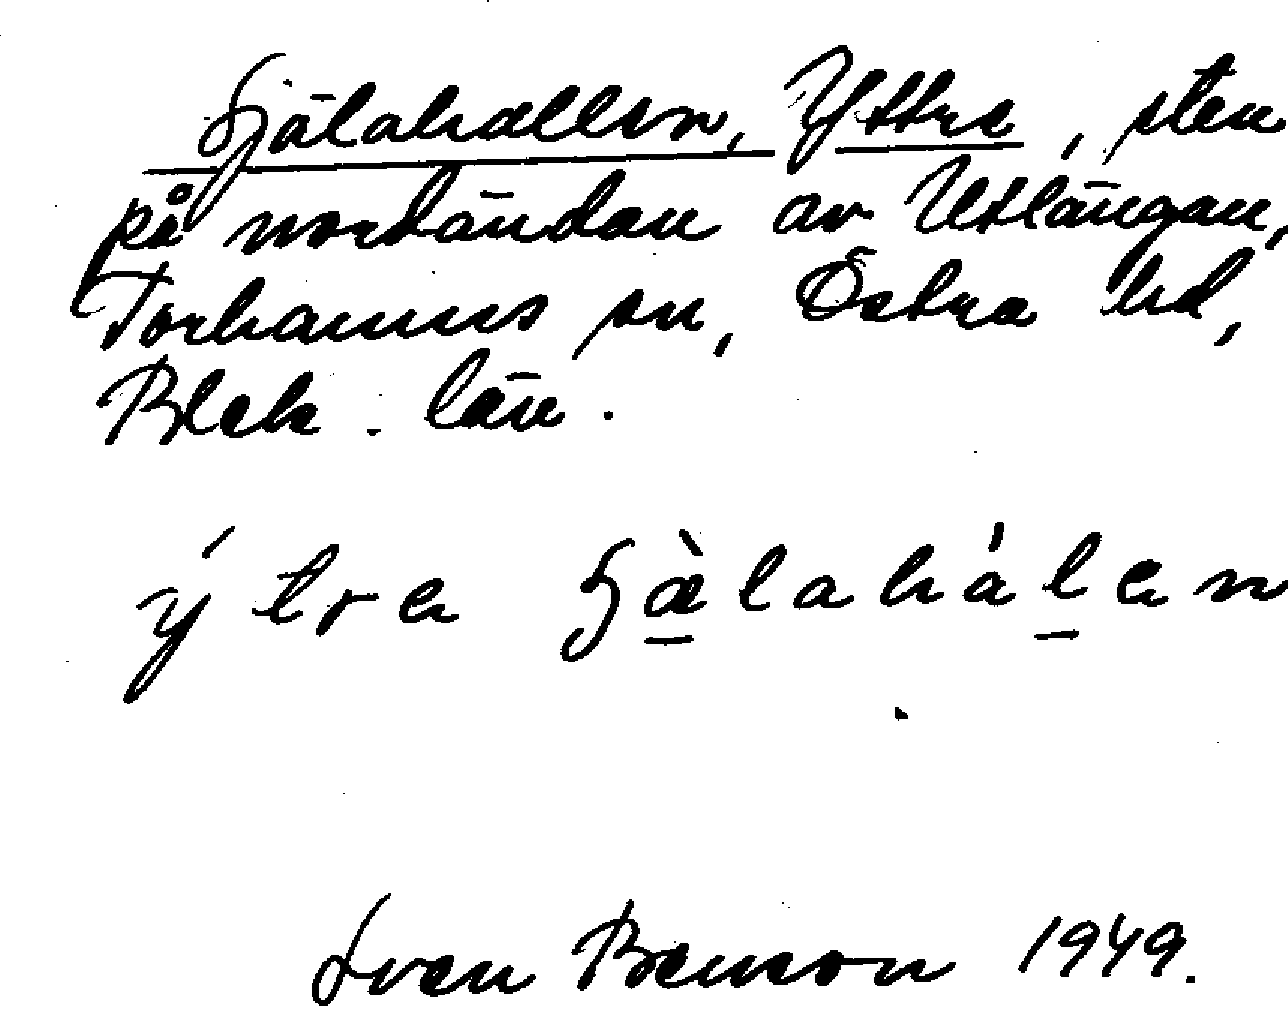 Själahallen, Yttre, sten
på nordändan av Utlängan,
Torhamns sn, Östra hd,
Blek. län.
ýtrɐ ʃæ̀lahálɐn
Sven Benson 1949.